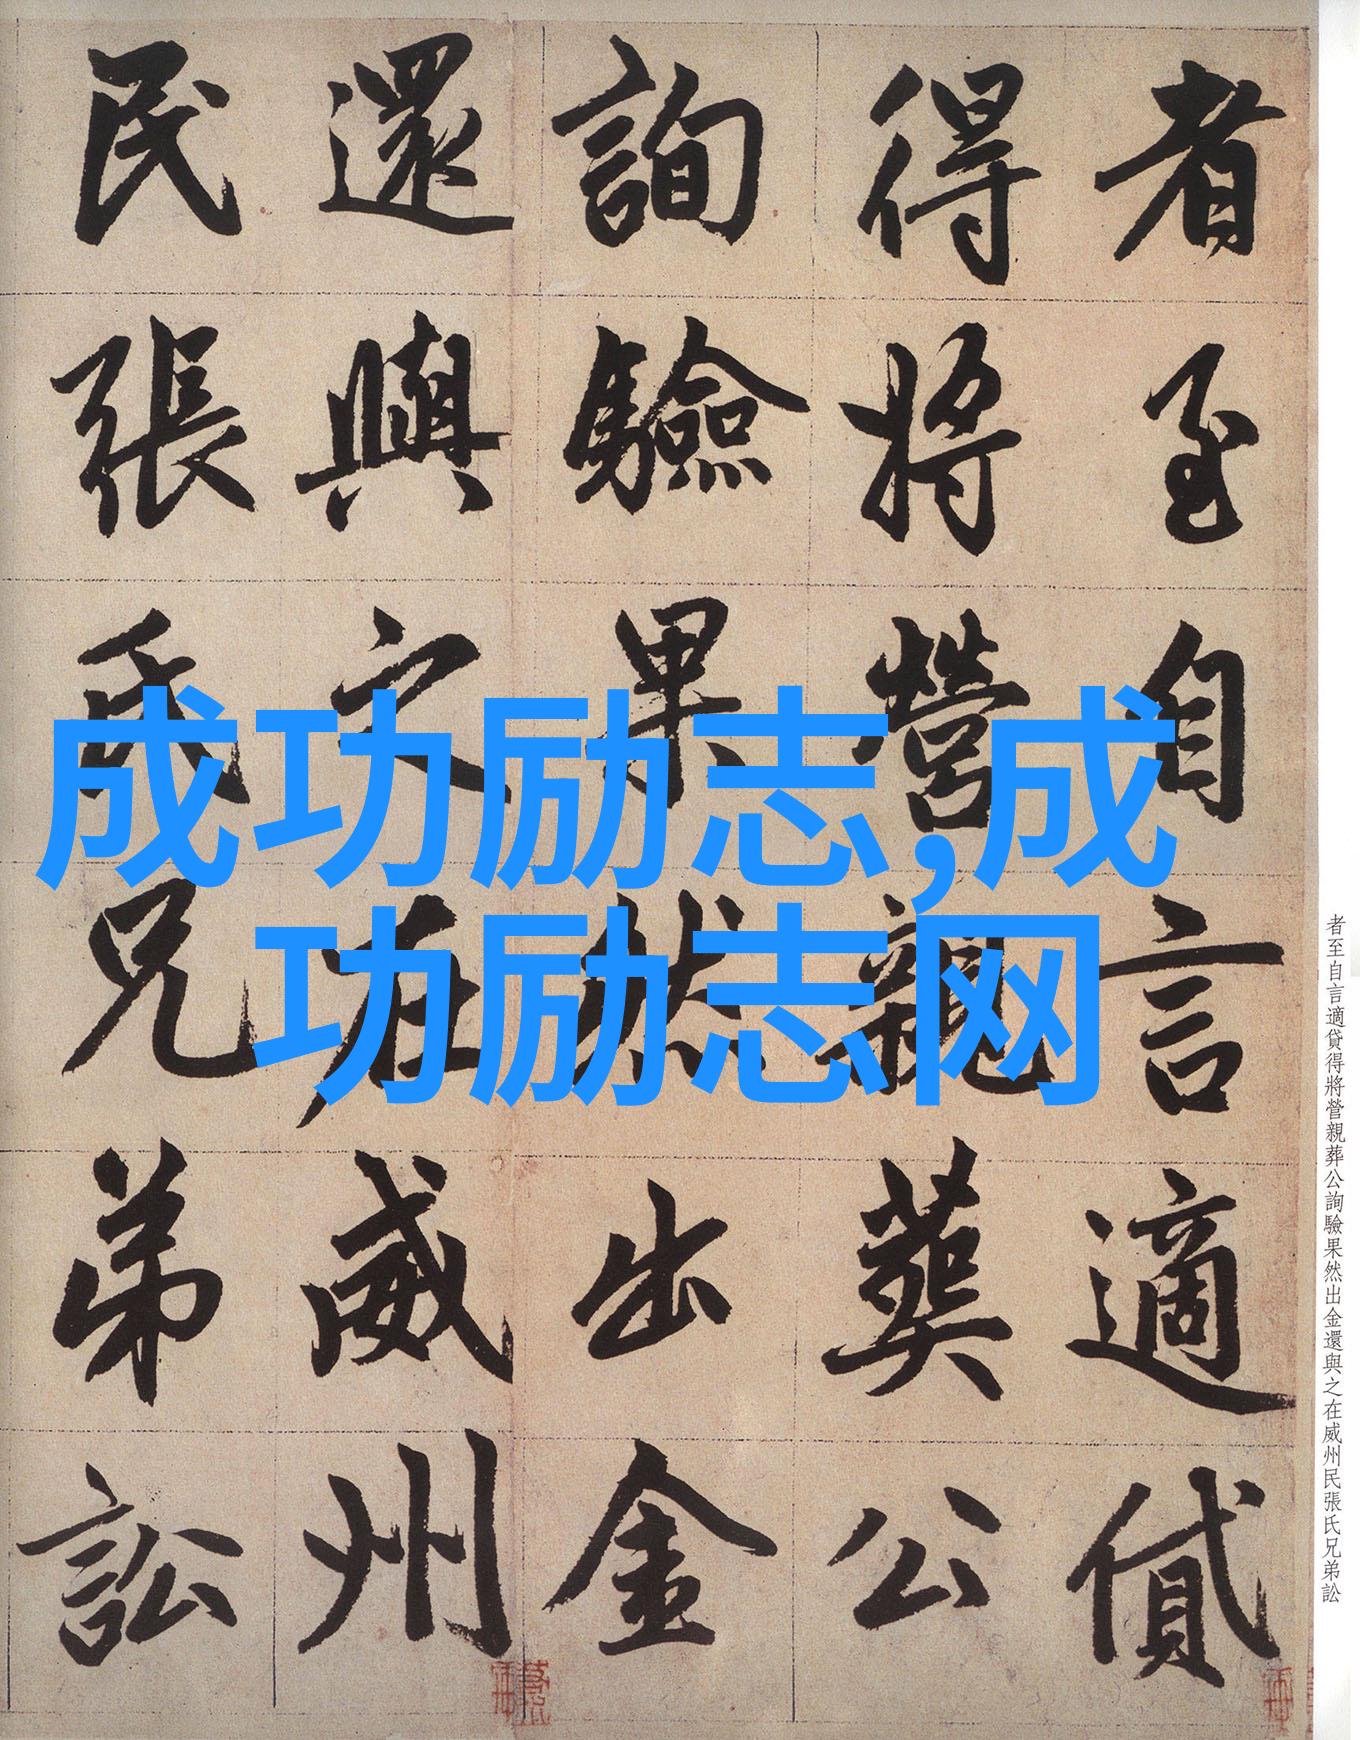 者至自言適貸
得將營親葬公
詢驗果然出金
還與之在威州
民張氏兄弟訟
成功励志,成
功励志网
者至自言適貸得將營親葬公詢驗果然出金還與之在威州民張氏兄弟訟